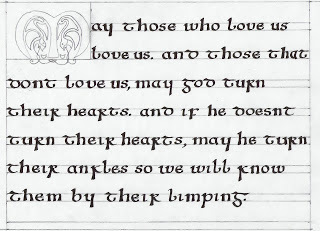 May those who love us
love us. and those that
dont love us, may god turn
their hearts. and if he doesnt
turn their hearts, may he turn
their ankles so we will know
them by their limping.